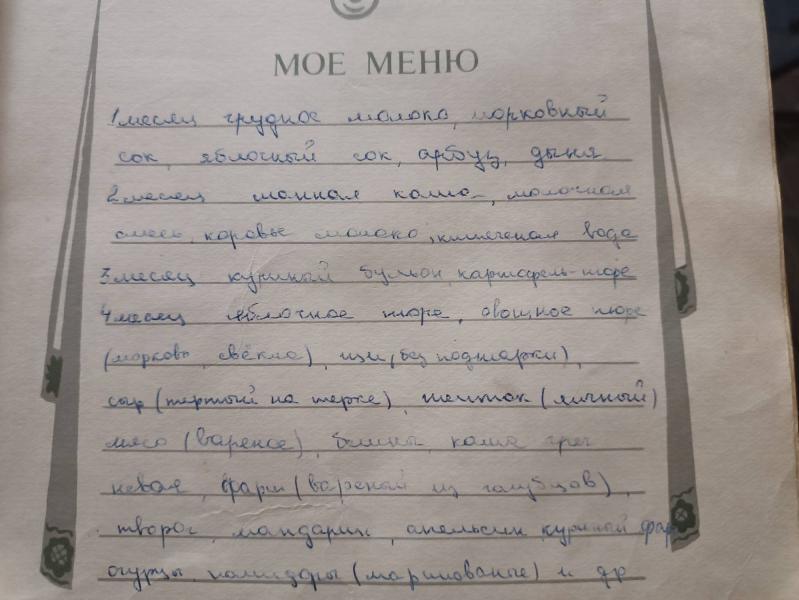 МОЕ МЕНЮ
1 месяц грудное молоко, морковный
сок, яблочный сок, арбуз, дыня
2 месяц манная каша, молочная
смесь, коровье молоко, кипяченая вода
3 месяц куриный бульон, картофель-пюре
4 месяц яблочное пюре, овощное пюре
(морковь, свёкла), щи (без поджарки),
сыр (тертый на терке), желток (яичный)
мясо (вареное), блины, каша греч
невая, фарш (вареный из голубцов),
творог, мандарин, апельсин, куриный фар
огурцы, помидоры (маринованые) и др